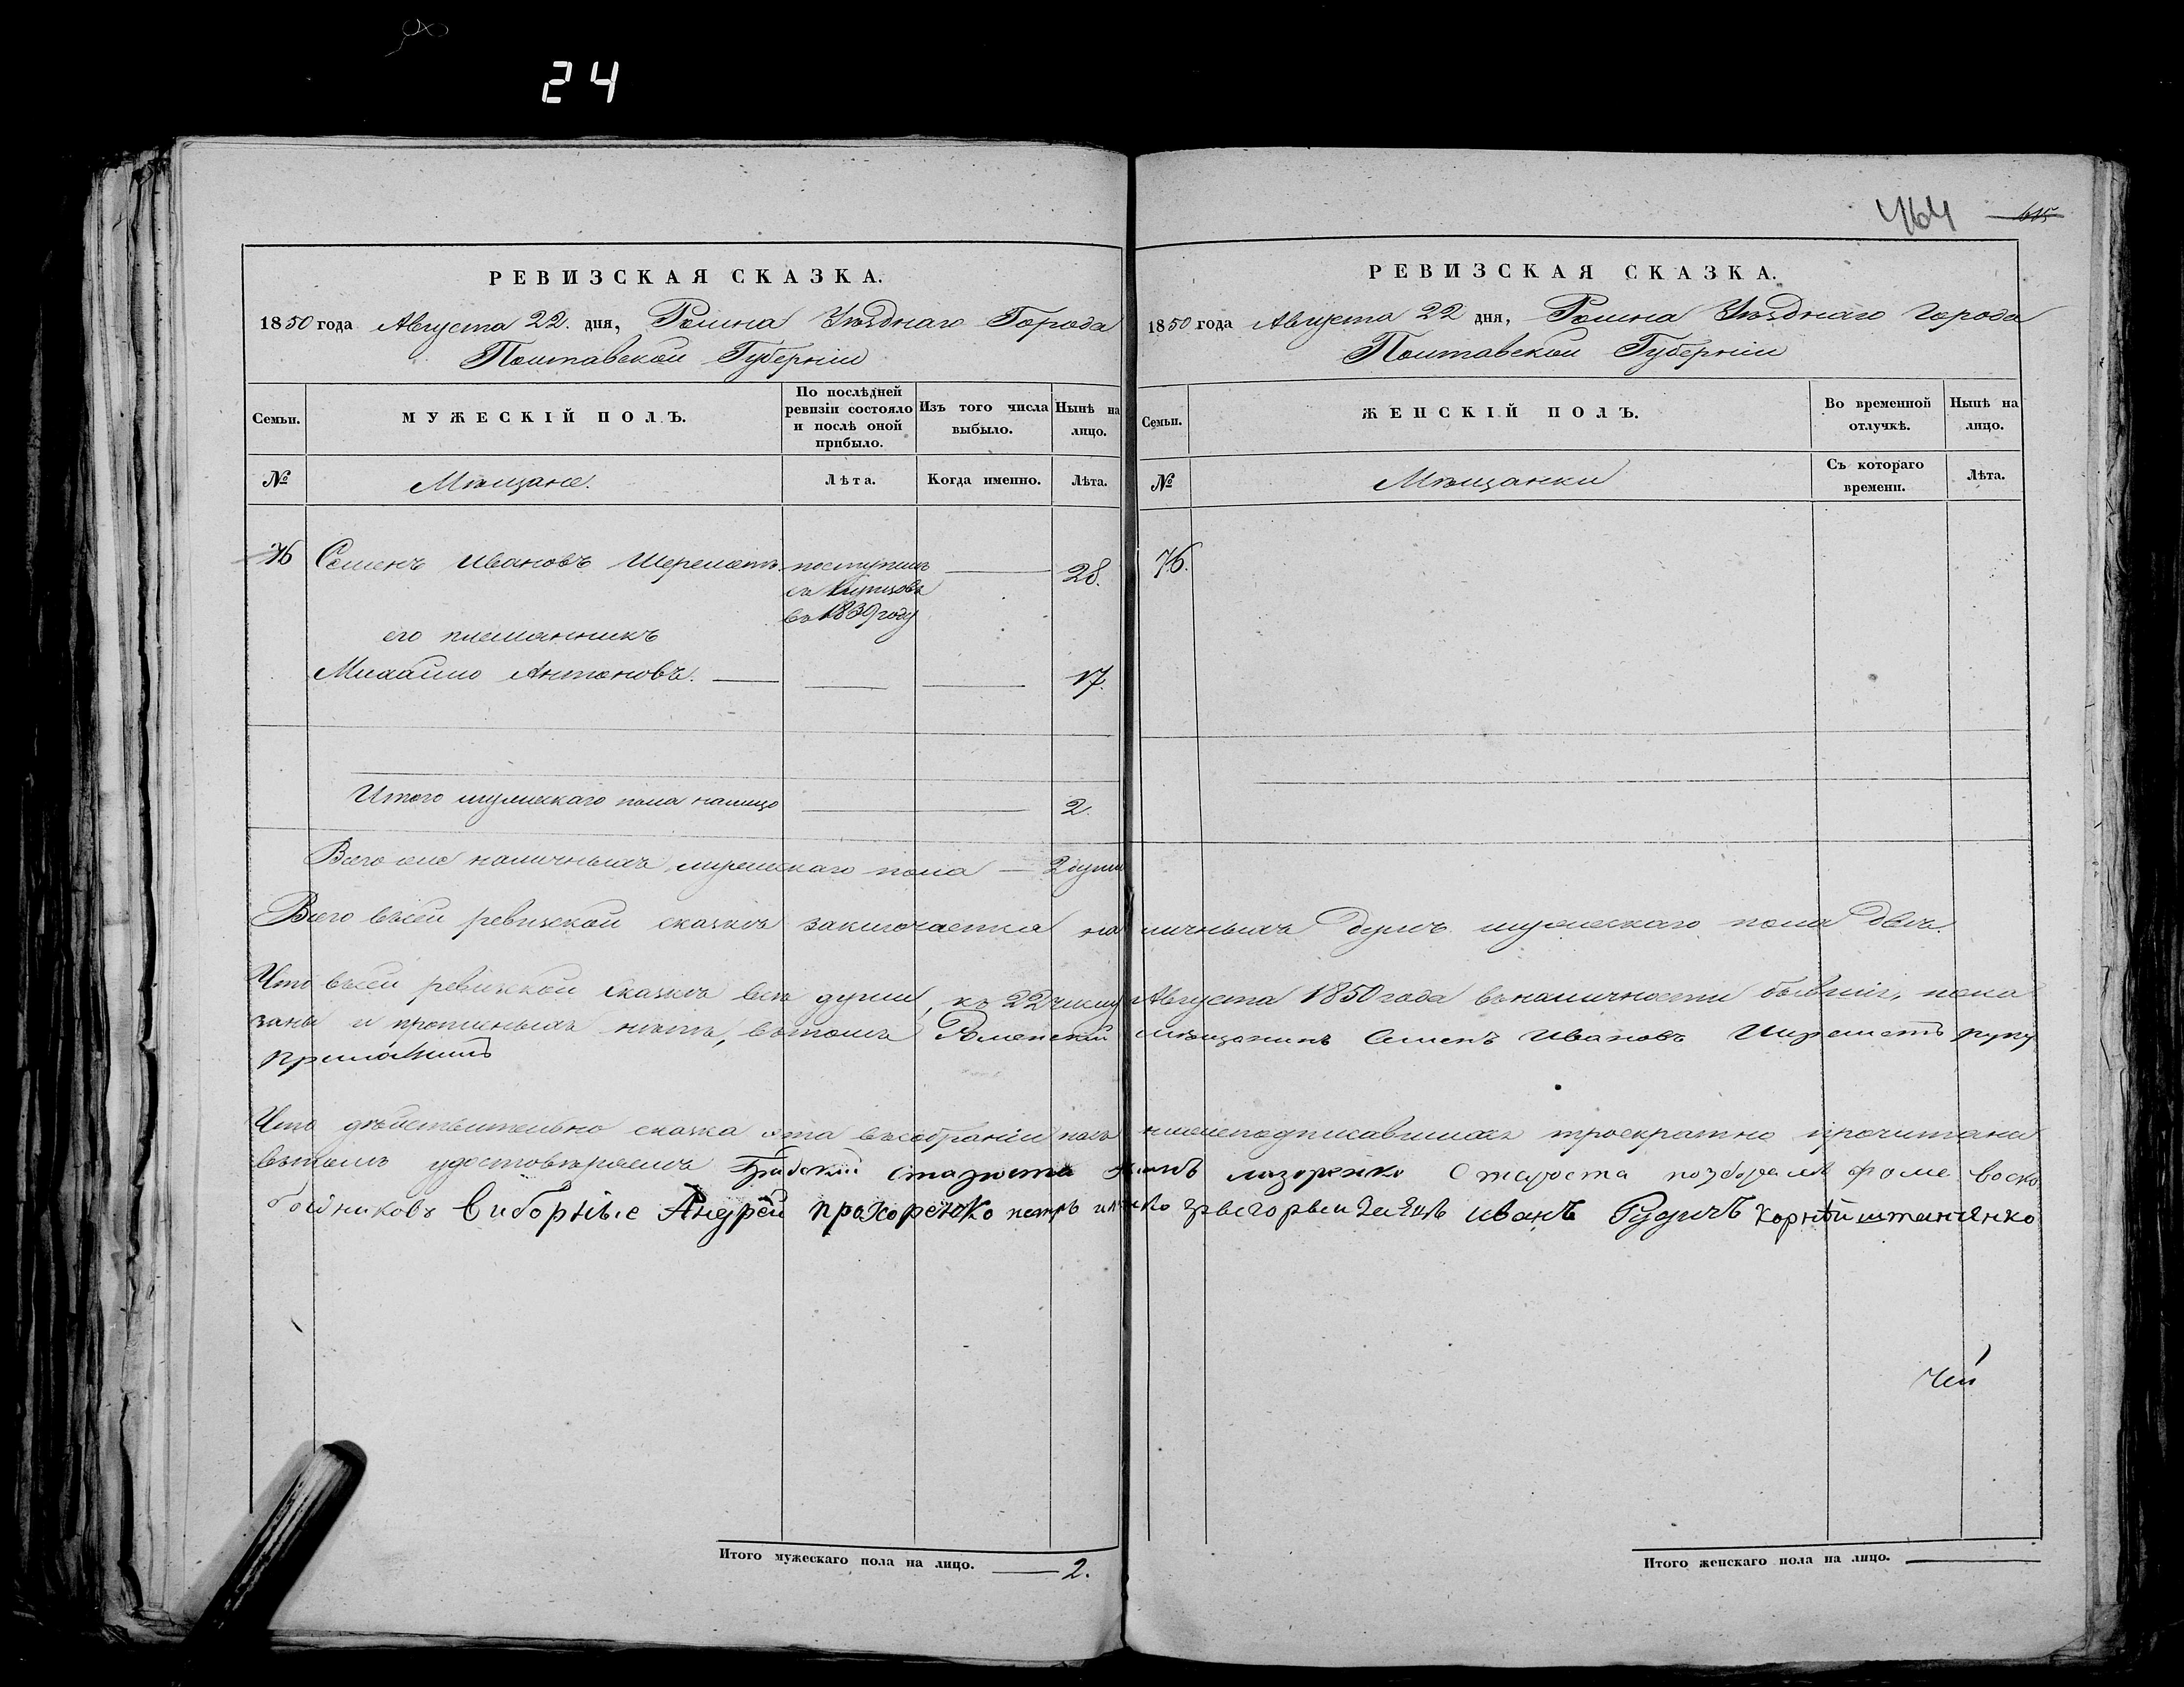 24
464 615
РЕВИЗСКАЯ СКАЗКА.
1850 года Августа 22. дня, Ромна Уѣзднаго Города
Полтавской Губерніи
Семьи.
МУЖЕСКІЙ ПОЛЪ.
По послѣдней ревизіи состояло и послѣ оной прибыло.
Изъ того числа выбыло.
Нынѣ на лицо.
№
Мѣщане.
Лѣта.
Когда именно.
Лѣта.
76 Семенъ Ивановъ Шереметъ поступилъ 28.
съ Купцовъ
въ 1839 году
его племянникъ
Михайло Антоновъ. 17.
Итого мужескаго пола налицо 2.
Всего наличныхъ мужескаго пола — 2 души
РЕВИЗСКАЯ СКАЗКА.
1850 года Августа 22 дня, Ромна Уѣзднаго Города
Полтавской Губерніи
Семьи.
ЖЕНСКІЙ ПОЛЪ.
Во временной отлучкѣ.
Нынѣ на лицо.
№
Мѣщанки
Съ котораго времени.
Лѣта.
76.
Всего въ сей ревизской сказкѣ заключается наличныхъ душъ мужескаго пола двѣ.
Что въ сей ревизской сказкѣ всѣ души, къ 22 числу Августа 1850 года въ наличности бывшіе, пока
заны и прописныхъ нѣтъ, въ томъ Роменскій мѣщанинъ Семенъ Ивановъ Шереметъ руку
приложилъ
Что дѣйствительно сказка эта въ собраніи насъ нижеподписавшихся троекратно прочитана
въ томъ удостовѣряемъ староста лазоренко Староста фоме воско
бойниковъ Виборные Андрей прохоренко петръ иванъ Рудичъ Корнѣй
Чей
Итого мужескаго пола на лицо. — 2.
Итого женскаго пола на лицо. —